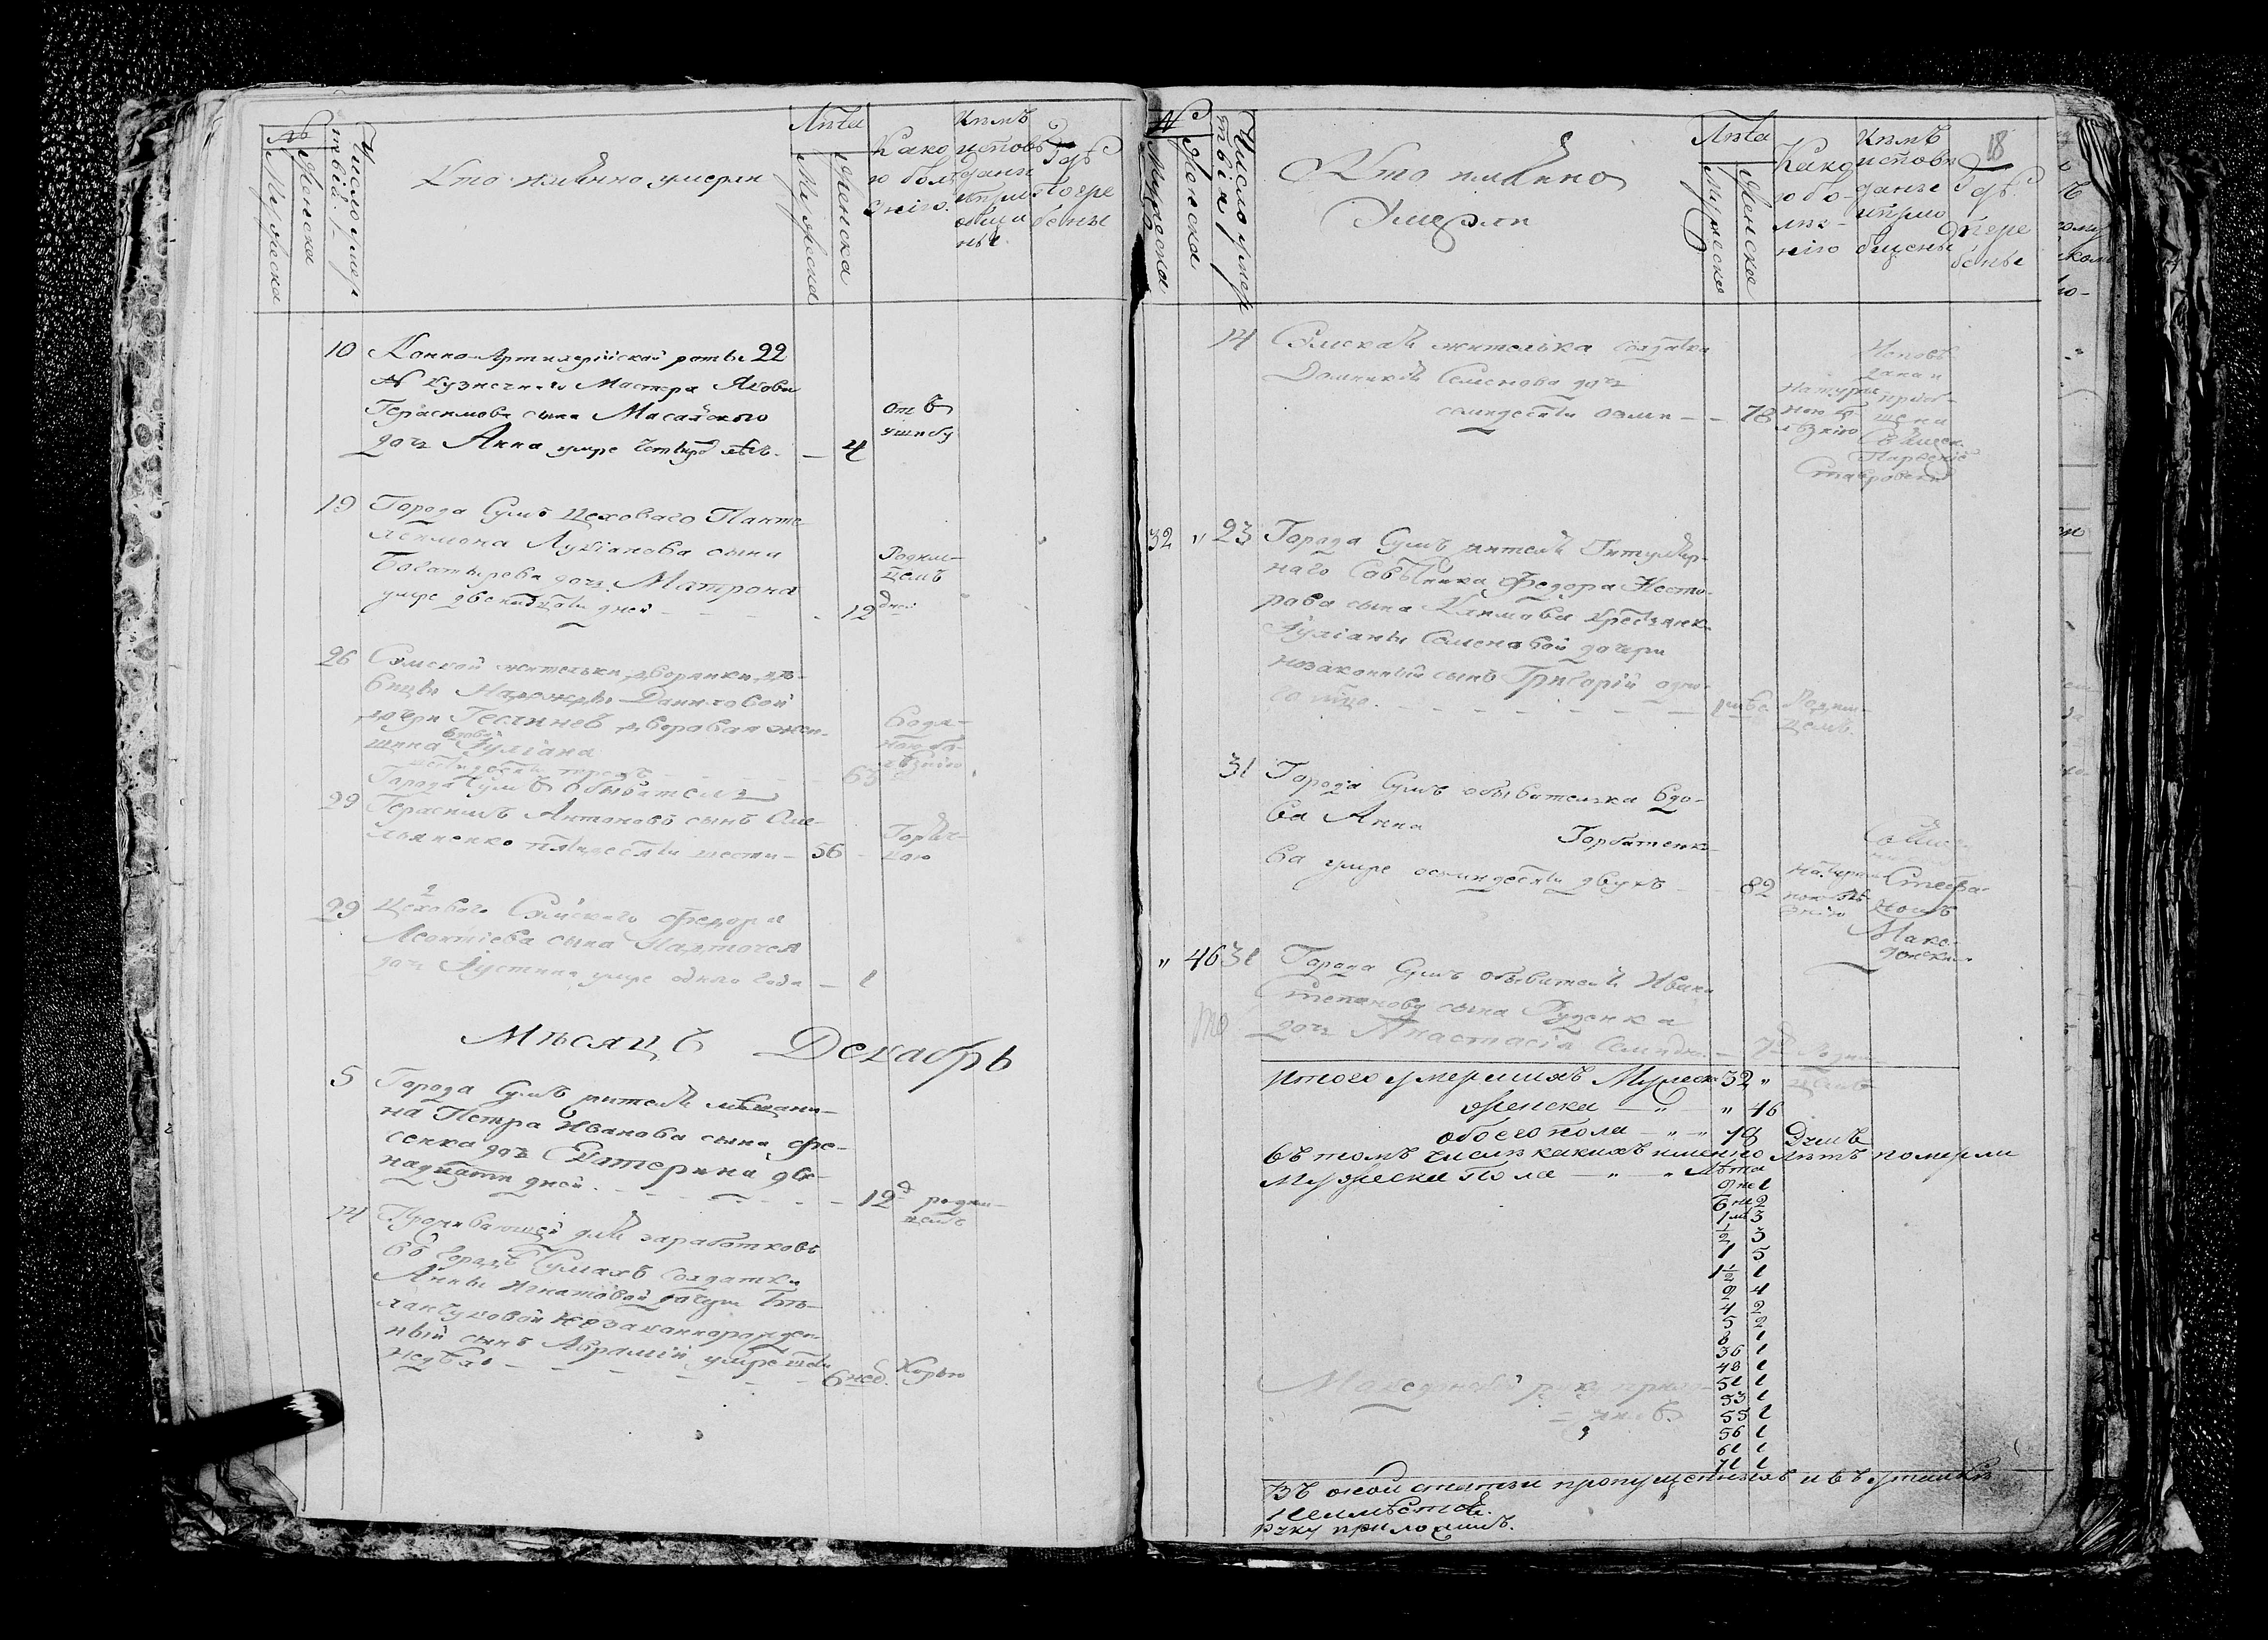 №
Мужеска
Женска
Число умер
твія
Кто имянно умерли
Лѣта
Мужеска
Женска
Како
ю болѣ
знію.
Кѣмъ
исповѣ
даны
и прі
обща
ны.
Гдѣ
Погре
бены
10 Конно-Артилерійской роты 22
№ кузнечнаго Мастера Якова
Герасимова сына Масайского
дочь Анна умре Четырѐ лѣтъ. — 4
отъ
ушибу
19 Города Сумъ Цеховаго Панте
леимона Лукіанова сына
Богатырева дочь Матрона
умре двенадцати дней - - - 12 дней
Родим-
цемъ
26 Сумской жительки дворянки дѣ-
вицы Надежды Даниловой
дочери дворовая жен-
щина вдова Іуліана
63
Водя-
ною бо-
лѣзнію
Города Сумъ обыватель
29 Герасимъ Антоновъ сынъ Оме-
льяненко пятидесяти шести — 56
Горяч-
кою
29 Цеховаго Сумскаго Федора
Леонтіева сына
дочь Іустина умре одного года — 1
Мѣсяцъ Декабрь
5 Города Сумъ житель мѣщани-
на Петра Иванова сына Фе-
сенка дочь Екатерина две-
надцати дней. - - - - 12 д родим-
цемъ
14 Проживающей для заработковъ
въ городѣ Сумахъ солдатки
Анны Игнатовой дочери Бѣ-
ланчуковой незаконнорожден-
ный сынъ Аврамій умре шести
недѣль - - - - 6 нед. Корью
№
Мужеска
Женска
Число умер
твія
Кто имянно
Умерли
Лѣта
Мужеска
Женска
Како
ю бо-
лѣз-
нію
Кѣмъ
исповѣ
даны
и прио
бщены
18
Гдѣ
Погре
бены
14 Сумская жителька солдатка
Домникія Семенова дочь
семидесяти осми - - 78
Натураль
ною бо
лѣзнію
Исповѣ
дана и
приоб-
щена
Священ.
Ставровски
32 " 23 Города Сумъ житель Титуляр-
наго Совѣтника Федора Несто-
рова сына Климова крестьянк
Іуліаны Семеновой дочери
незаконный сынъ Григорій одно-
го
Родим-
цемъ.
31 Города Сумъ обывателка вдо-
ва Анна Горбатенко-
ва умре осмидесяти двухъ - - 82
Натураль
ною болѣ
знію
Стефа-
номъ
Маке-
донским
" 46 31 Города Сумъ обывателя Ивана
Степанова сына Руденка
дочь Анастасія семи дн. — 7д Родим-
цемъ
Итого умершихъ Мужеск 32 "
женска — " — " 46
обоего пола — " — " 78 Душъ
въ томъ числѣ какихъ имянно лѣтъ померли
Мужеска Пола — " — " Лѣта
2 не 1
6 не 2
1 мц 3
½ 3
1 5
1½ 1
2 4
4 2
5 2
8 1
36 1
48 1
51 1
53 1
55 1
56 1
61 1
71 1
Македонскій руку прило-
жилъ
Въ оной статьи пропущенныхъ и въ утайкѣ
неимѣется.
руку приложилъ.